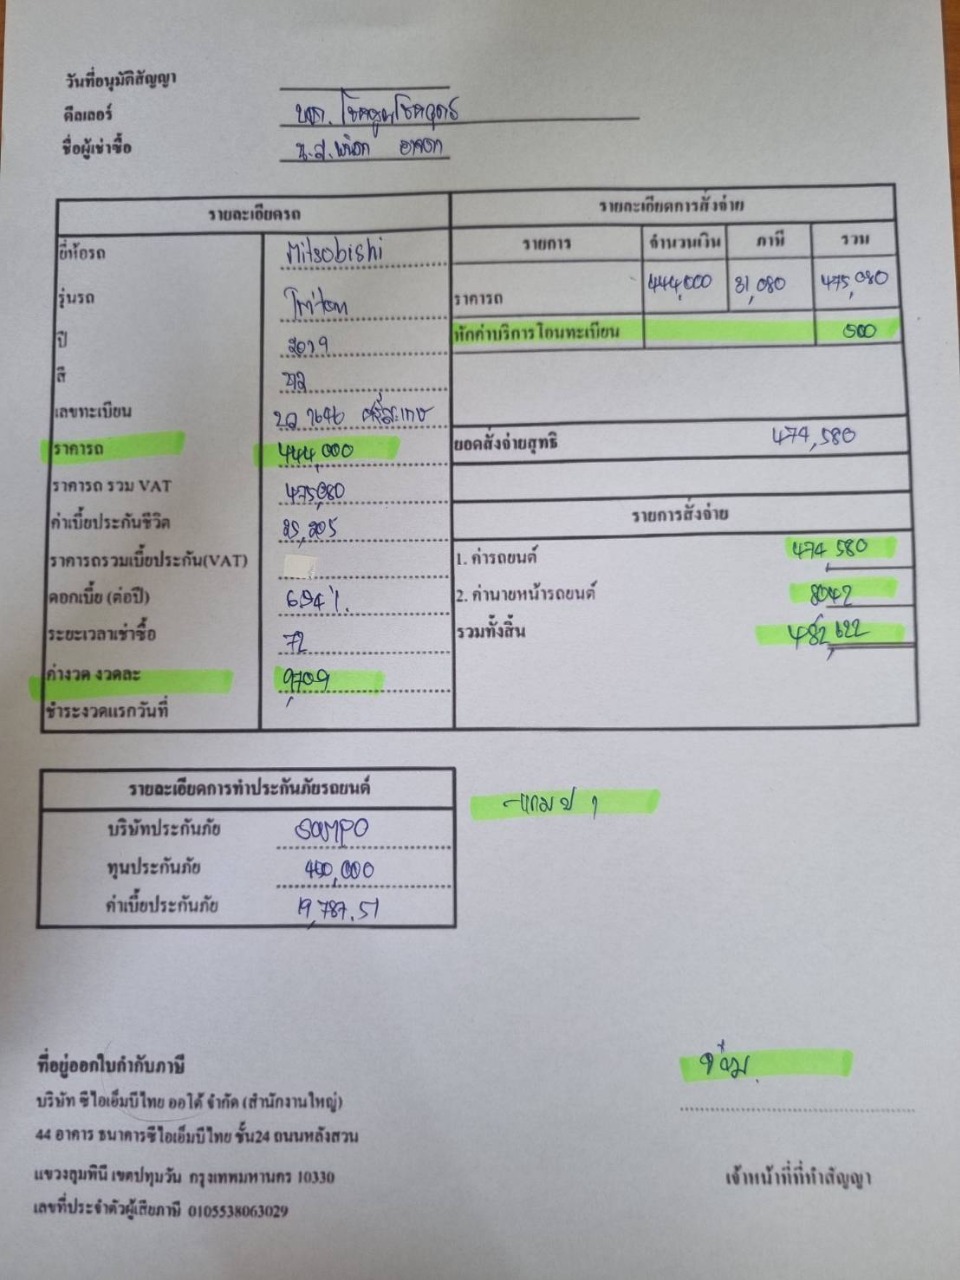 วันที่อนุมัติสัญญา
ดีลเลอร์ หจก. โชคคูณโชคออโต้
ชื่อผู้เช่าซื้อ น.ส.
รายละเอียดรถ
ยี่ห้อรถ Mitsobishi
รุ่นรถ Triton
ปี 2019
สี
เลขทะเบียน 1646 ศรีสะเกษ
ราคารถ 444,000
ราคารถ รวม VAT 475,080
ค่าเบี้ยประกันชีวิต 25,205
ราคารถรวมเบี้ยประกัน(VAT)
ดอกเบี้ย (ต่อปี) 6.94%
ระยะเวลาเช่าซื้อ 72
ค่างวด งวดละ 9,709
ชำระงวดแรกวันที่
รายละเอียดการสั่งจ่าย
รายการ จำนวนเงิน ภาษี รวม
ราคารถ 444,000 31,080 475,080
หักค่าบริการโอนทะเบียน 500
ยอดสั่งจ่ายสุทธิ 474,580
รายการสั่งจ่าย
1. ค่ารถยนต์ 474,580
2. ค่านายหน้ารถยนต์ 8042
รวมทั้งสิ้น 482,622
รายละเอียดการทำประกันภัยรถยนต์
บริษัทประกันภัย SOMPO
ทุนประกันภัย 400,000
ค่าเบี้ยประกันภัย 19,787.51
-แถม ป 1
ที่อยู่ออกใบกำกับภาษี
บริษัท ซีไอเอ็มบีไทย ออโต้ จำกัด (สำนักงานใหญ่)
44 อาคาร ธนาคารซีไอเอ็มบีไทย ชั้น24 ถนนหลังสวน
แขวงลุมพินี เขตปทุมวัน กรุงเทพมหานคร 10330
เลขที่ประจำตัวผู้เสียภาษี 0105538063029
เจ้าหน้าที่ที่ทำสัญญา